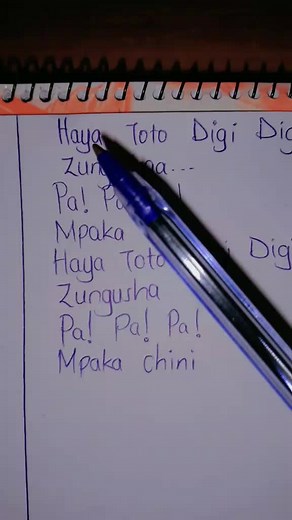 Haya Toto Digi Dig
Zun
Pa!
Mpaka
Haya Toto Digi
Zungusha
Pa! Pa! Pa!
Mpaka chini